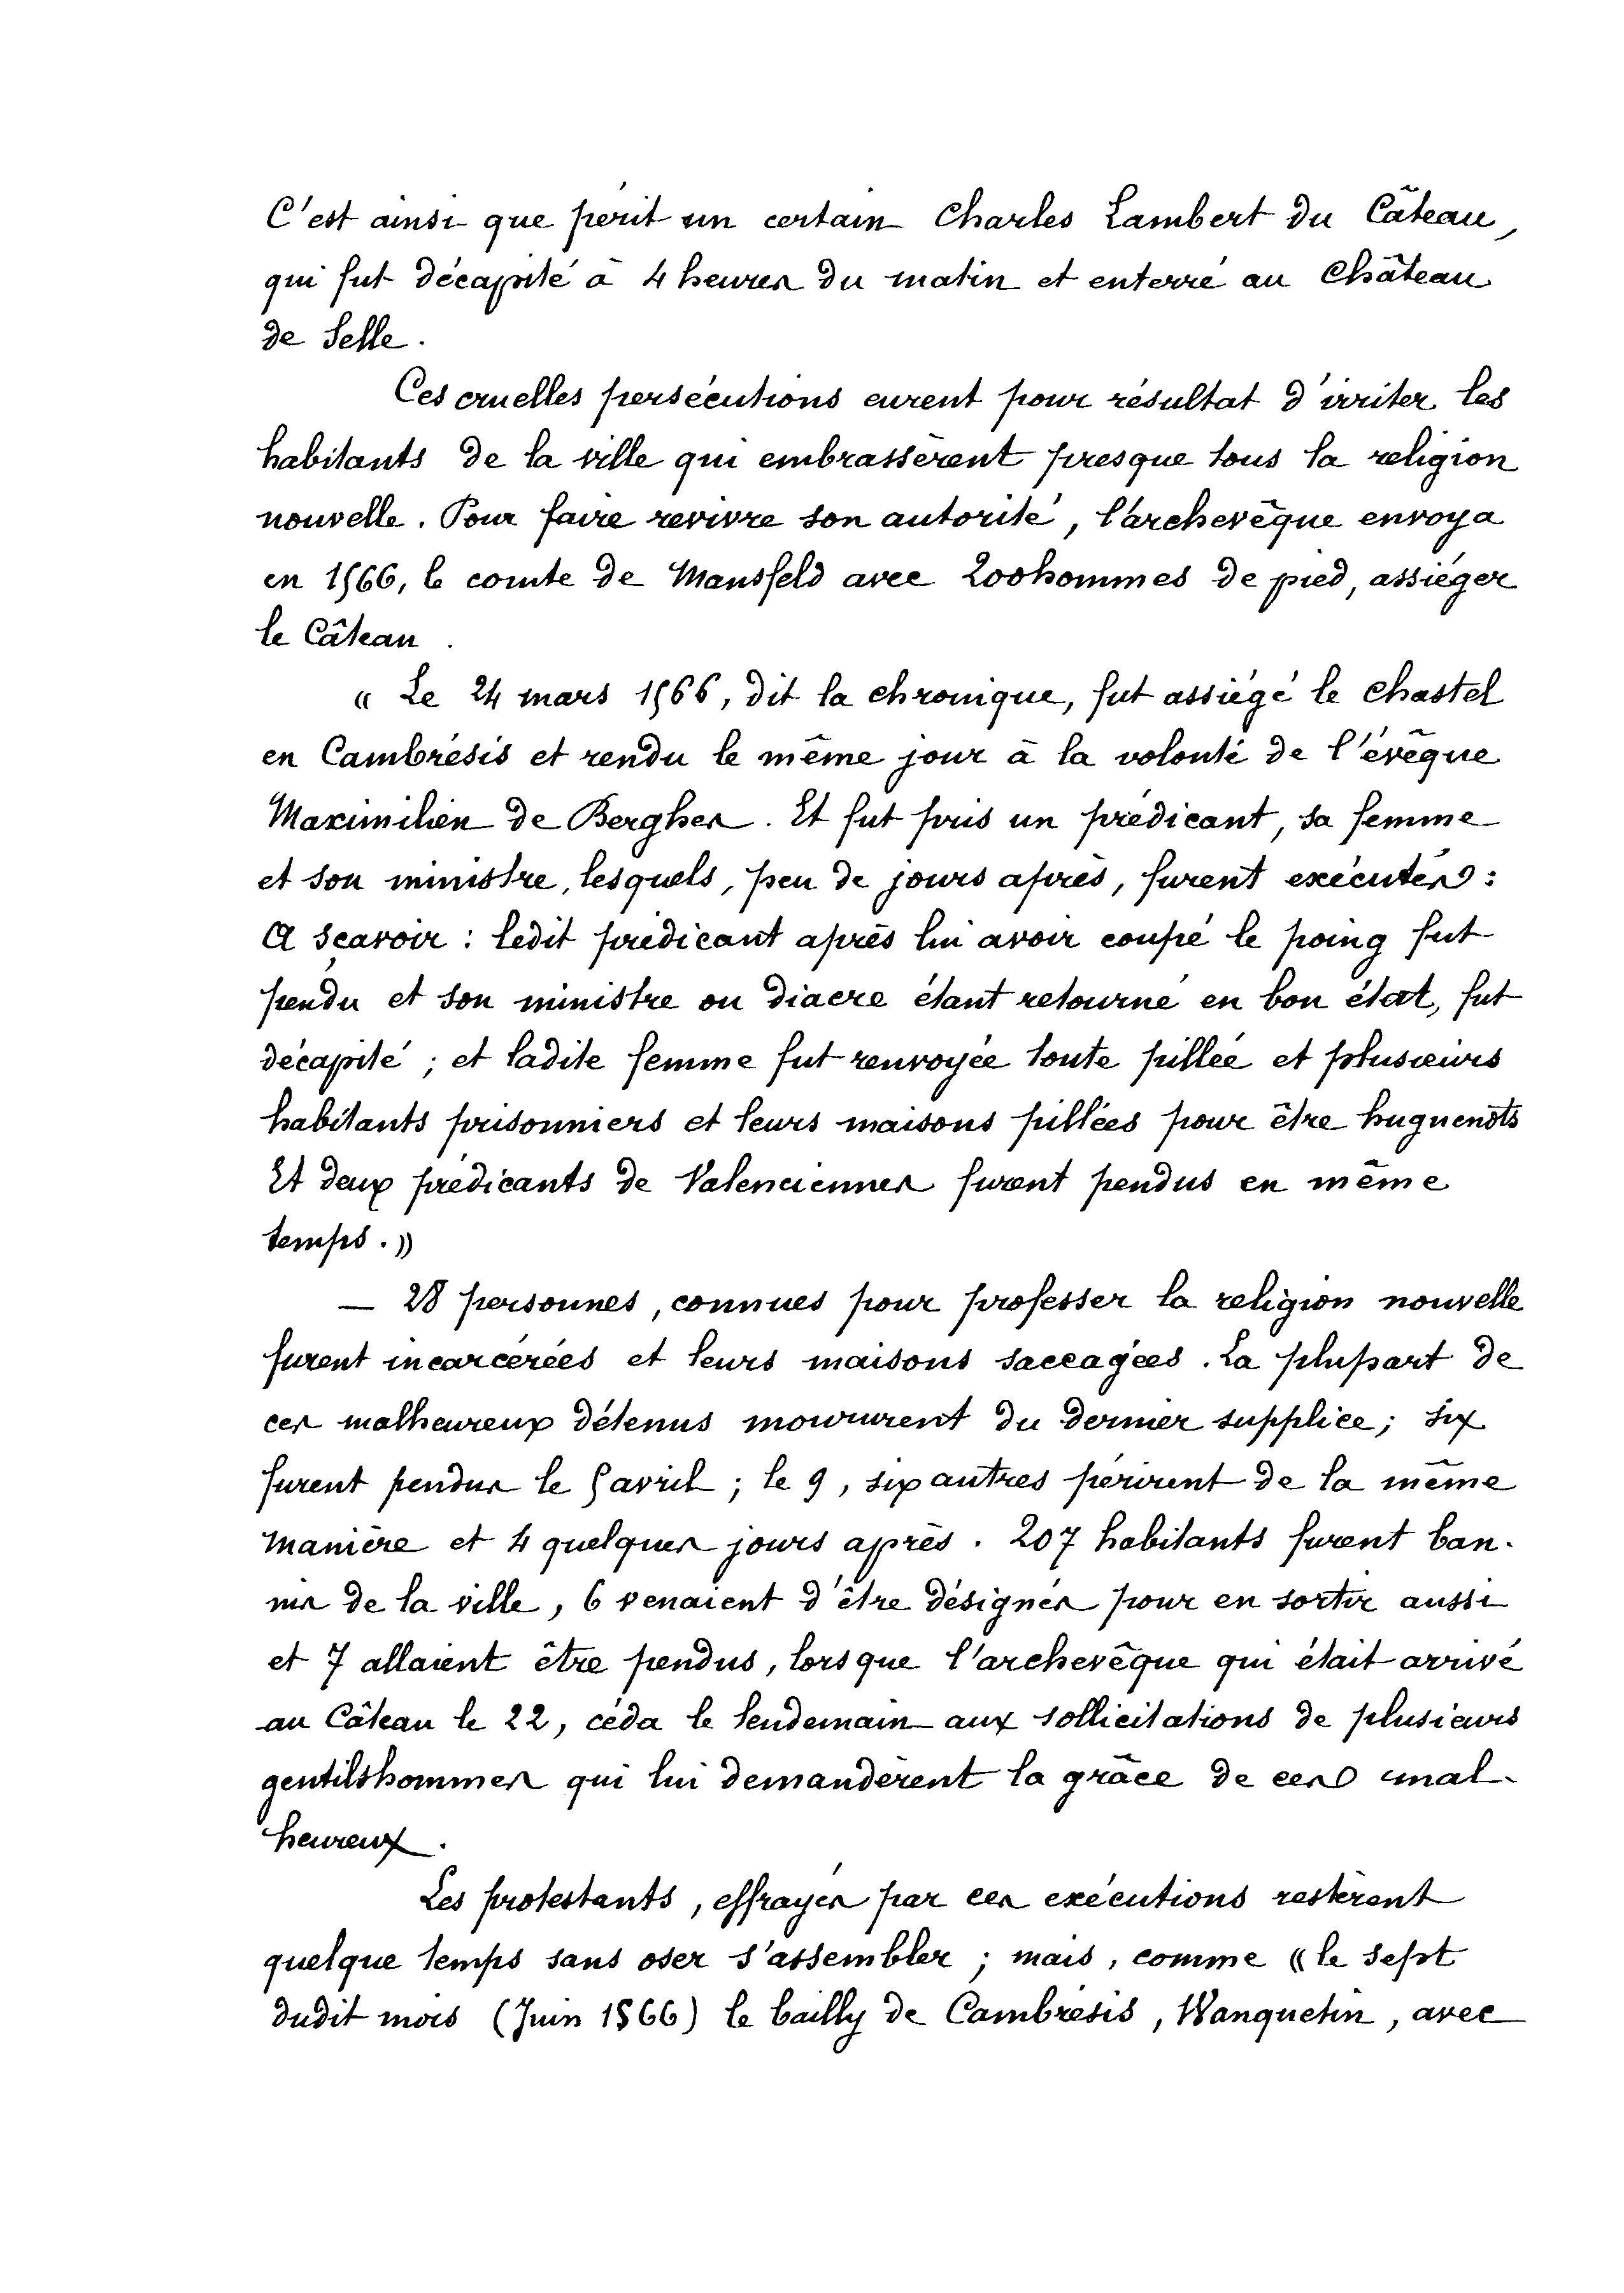 C'est ainsi que périt un certain Charles Lambert du Câteau,
qui fut décapité à 4 heures du matin et enterré au Château
de Selle.
Ces cruelles persécutions eurent pour résultat d'irriter les
habitants de la ville qui embrassèrent presque tous la religion
nouvelle. Pour faire revivre son autorité, l'archevêque envoya
en 1566, le comte de Mansfeld avec 200 hommes de pied, assiéger
le Câteau.
« Le 24 mars 1566, dit la chronique, fut assiégé le Chastel
en Cambrésis et rendu le même jour à la volonté de l'évêque
Maximilien de Berghes. Et fut pris un prédicant, sa femme
et son ministre, lesquels, peu de jours après, furent exécutés :
A sçavoir : ledit prédicant après lui avoir coupé le poing fut
pendu et son ministre ou diacre étant retourné en bon état, fut
décapité ; et ladite femme fut renvoyée toute pillée et plusieurs
habitants prisonniers et leurs maisons pillées pour être huguenots
Et deux prédicants de Valenciennes furent pendus en même
temps. »
— 28 personnes, connues pour professer la religion nouvelle
furent incarcérées et leurs maisons saccagées. La plupart de
ces malheureux détenus moururent du dernier supplice ; six
furent pendus le 5 avril ; le 9, six autres périrent de la même
manière et 4 quelques jours après. 207 habitants furent ban-
nis de la ville, 6 venaient d'être désignés pour en sortir aussi
et 7 allaient être pendus, lorsque l'archevêque qui était arrivé
au Câteau le 22, céda le lendemain aux sollicitations de plusieurs
gentilshommes qui lui demandèrent la grâce de ces mal-
heureux.
Les protestants, effrayés par ces exécutions restèrent
quelque temps sans oser s'assembler ; mais, comme « le sept
dudit mois (Juin 1566) le bailly de Cambrésis, Wanquetin, avec